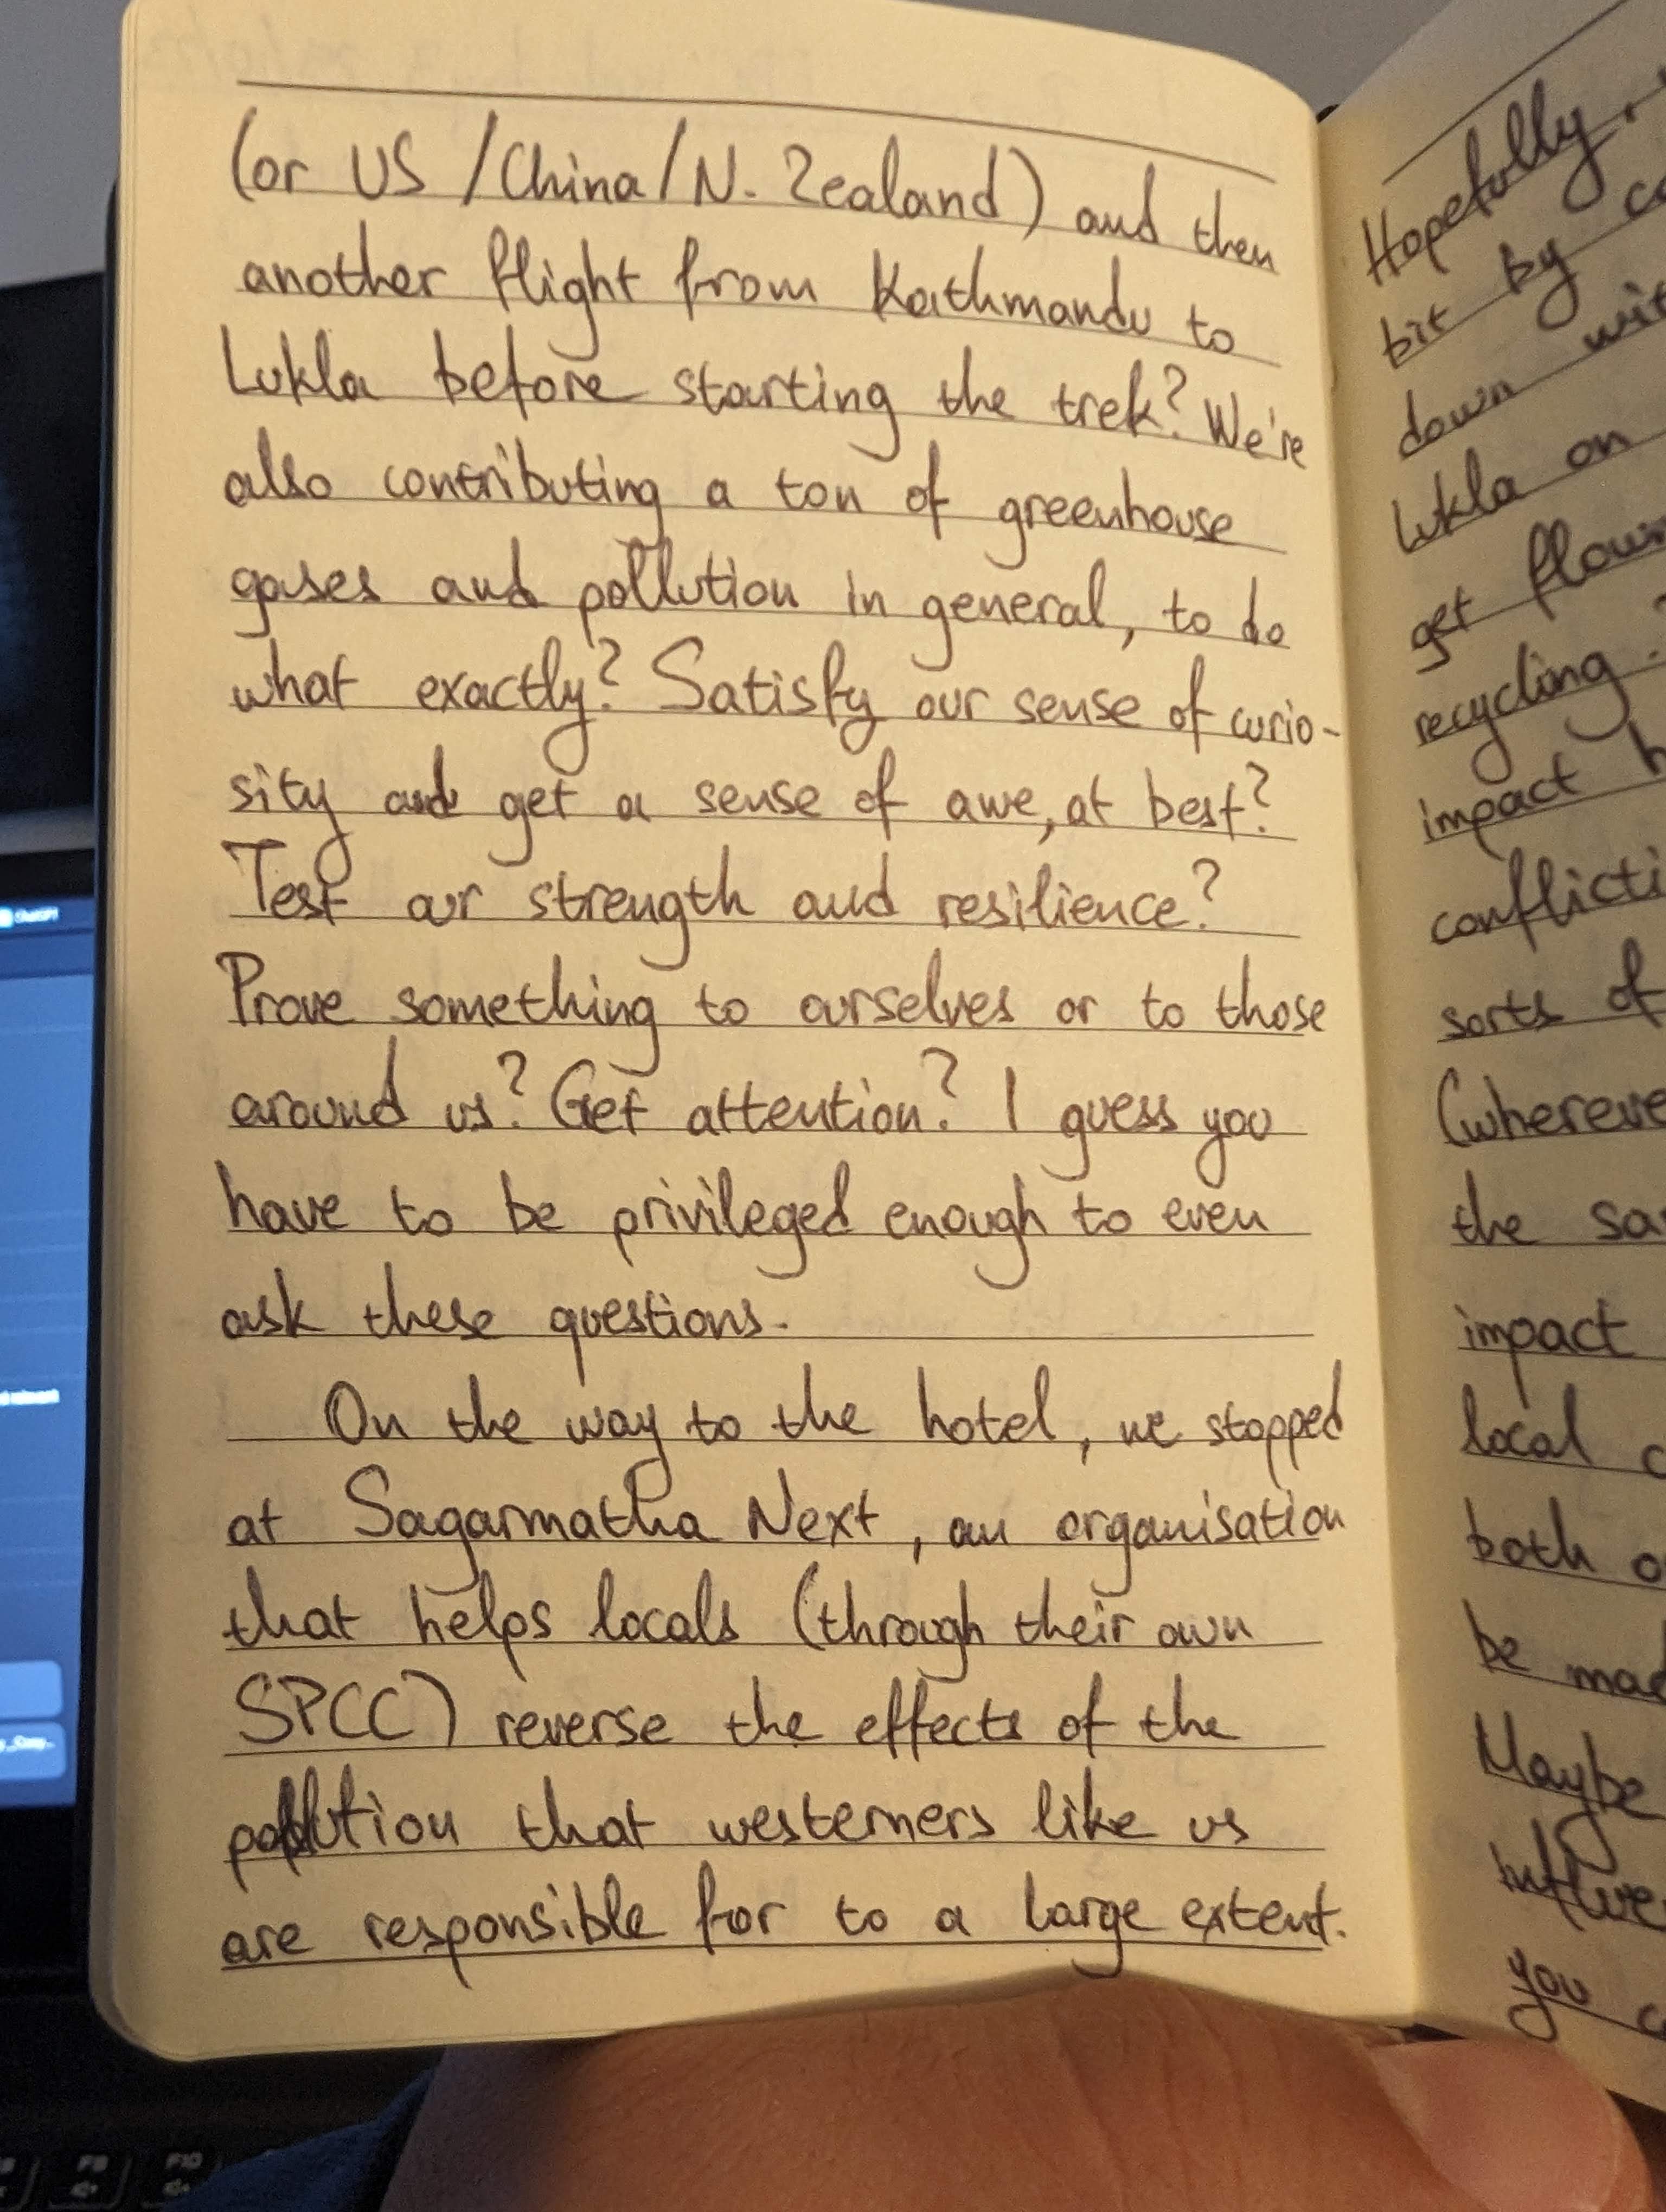 (or US /China/N. Zealand) and then
another flight from Kathmandu to
Lukla before starting the trek? We're
also contributing a ton of greenhouse
gases and pollution in general, to do
what exactly? Satisfy our sense of curio-
sity and get a sense of awe, at best?
Test our strength and resilience?
Prove something to ourselves or to those
around us? Get attention? I guess you
have to be privileged enough to even
ask these questions.
On the way to the hotel, we stopped
at Sagarmatha Next, an organisation
that helps locals (through their own
SPCC) reverse the effects of the
pollution that westerners like us
are responsible for to a large extent.
Hopefully,
bit by
down
Lukla on
get
recycling?
impact
sorts of
the
impact
local
both
be
Maybe
you
ChatGPT
F9
F10